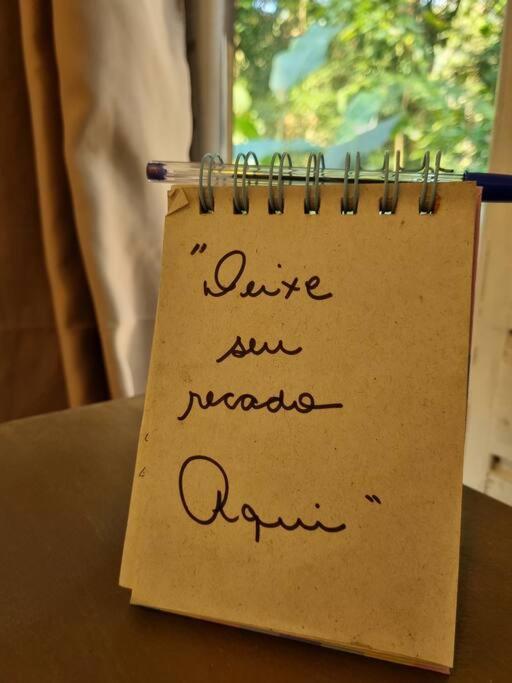 "Deixe
seu
recado
Aqui"